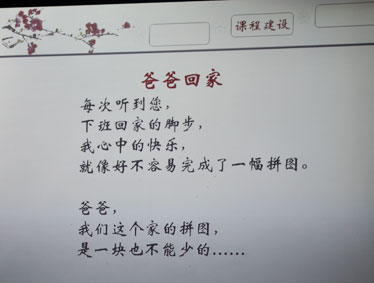 课程建设
爸爸回家
每次听到您，
下班回家的脚步，
我心中的快乐，
就像好不容易完成了一幅拼图。
爸爸，
我们这个家的拼图，
是一块也不能少的……